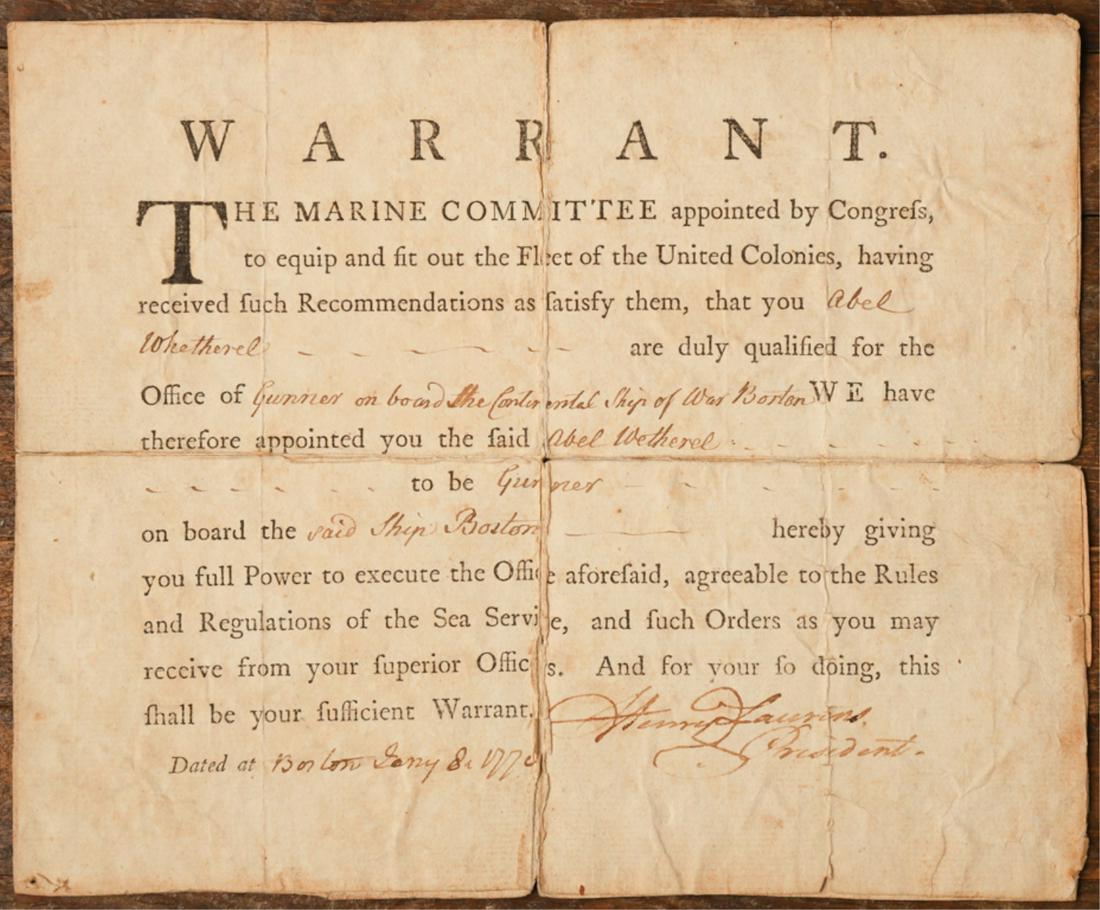 WARRANT.
THE MARINE COMMITTEE appointed by Congreſs,
to equip and fit out the Fleet of the United Colonies, having
received ſuch Recommendations as ſatisfy them, that you Abel
Whetherel are duly qualified for the
Office of Gunner on board the Continental Ship of War Boston WE have
therefore appointed you the ſaid Abel Wetherel
to be Gunner
on board the said Ship Boston hereby giving
you full Power to execute the Office aforeſaid, agreeable to the Rules
and Regulations of the Sea Service, and ſuch Orders as you may
receive from your ſuperior Officers. And for your ſo doing, this
ſhall be your ſufficient Warrant. Henry Laurens.
President.
Dated at Boston Jany 8